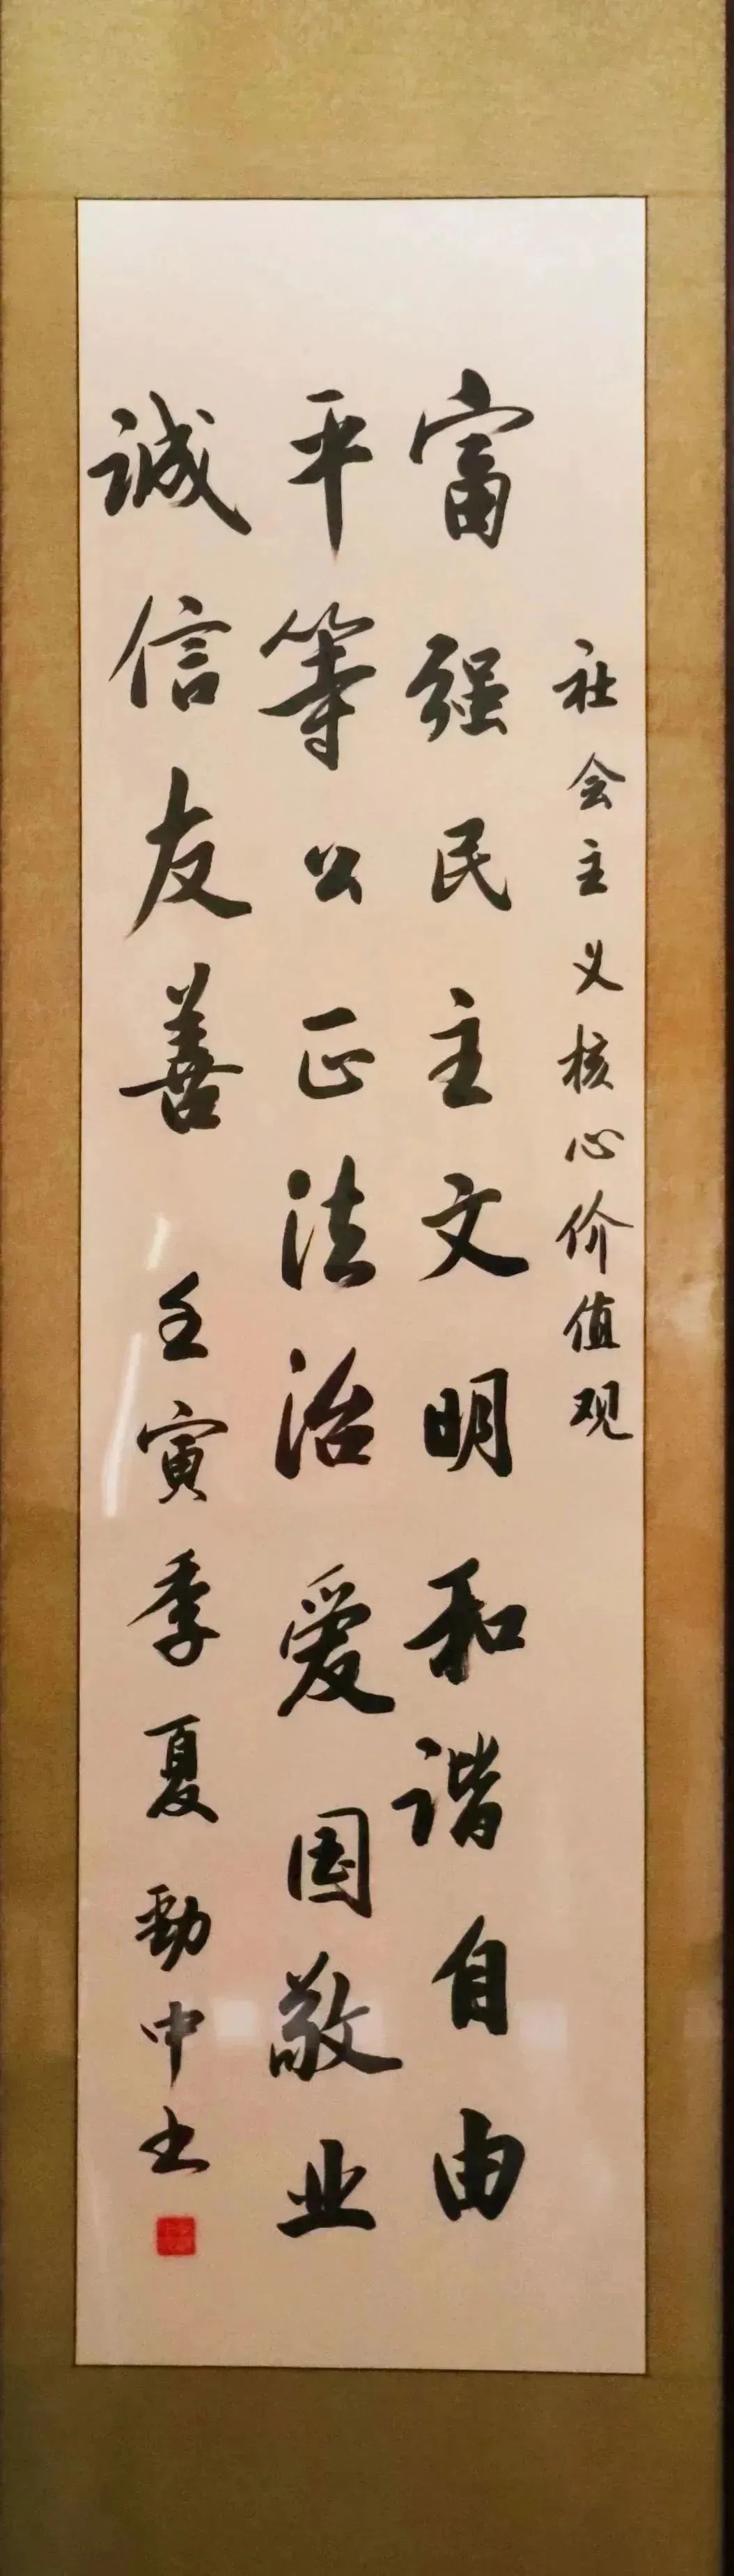 社会主义核心价值观
富强民主文明和谐自由
平等公正法治爱国敬业
诚信友善 壬寅季夏劲中书